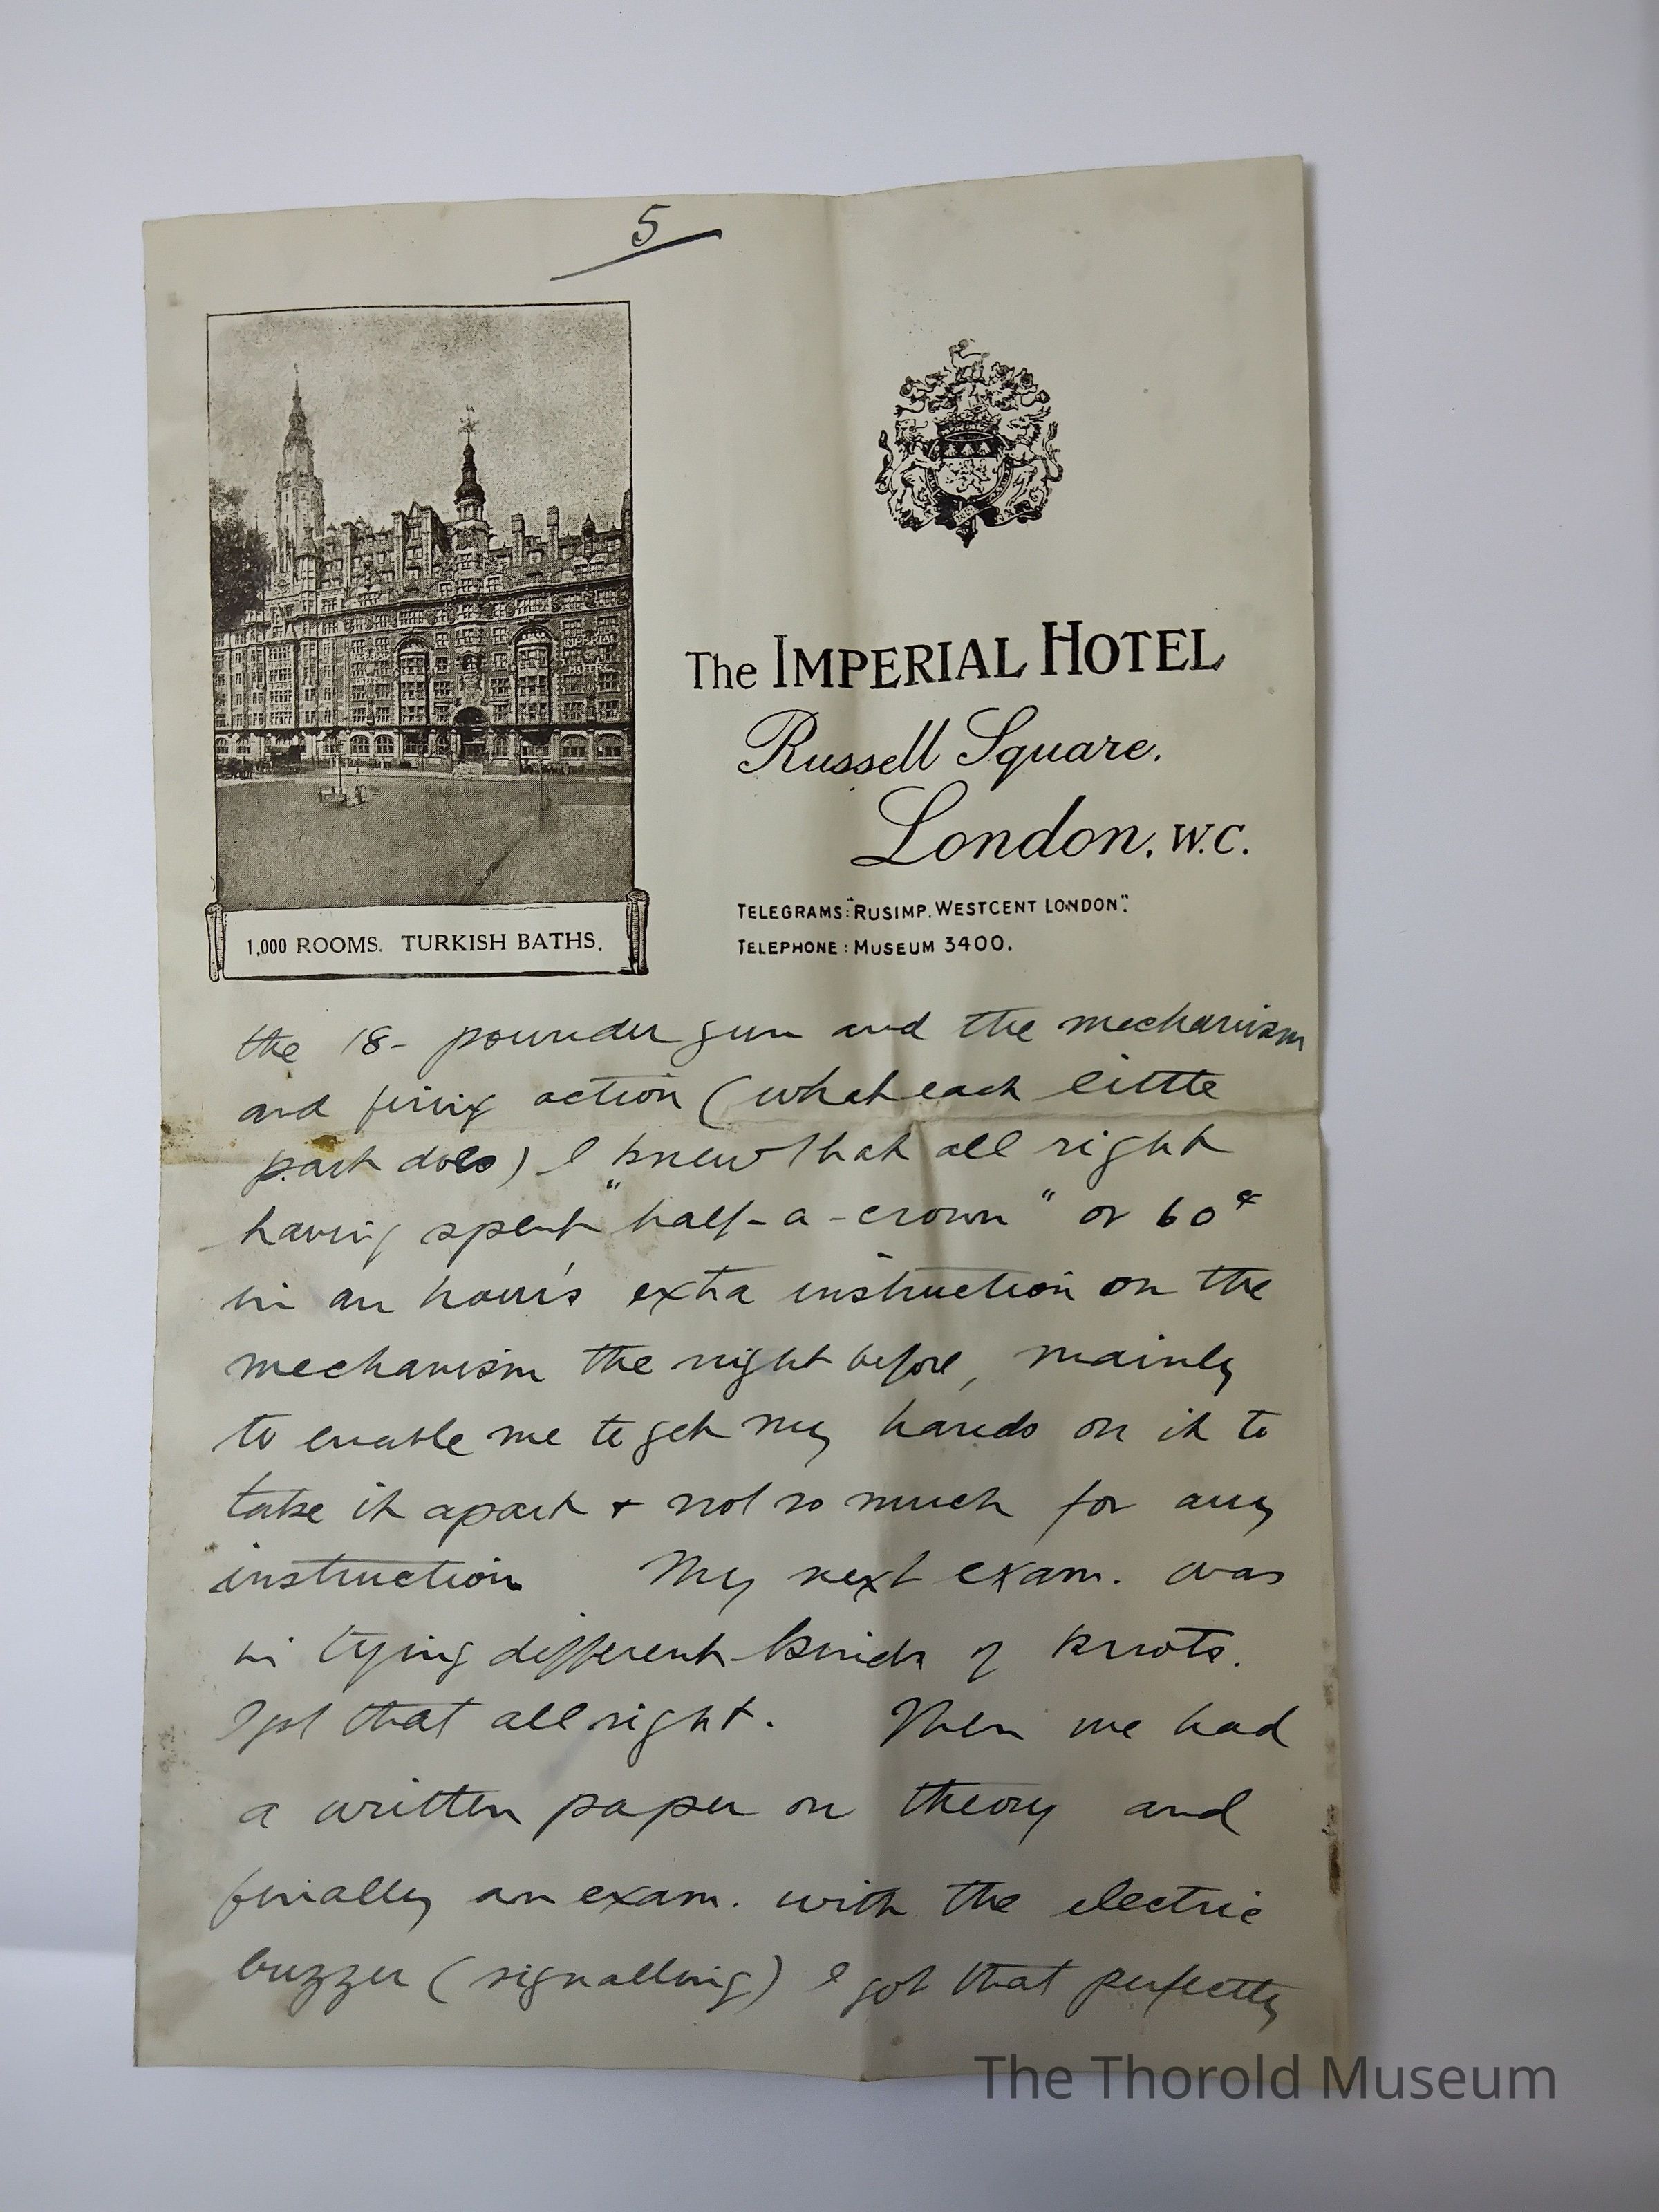 5
IMPERIAL
HOTEL
The IMPERIAL HOTEL
Russell Square.
London. W.C.
TELEGRAMS: "RUSIMP. WESTCENT LONDON".
TELEPHONE: MUSEUM 3400.
1,000 ROOMS. TURKISH BATHS.
the 18- pounder gun and the mechanism
and firing action (what each little
part does) I knew that all right
having spent "half-a-crown" or 60¢
in an hour's extra instruction on the
mechanism the night before, mainly
to enable me to get my hands on it to
take it apart + not so much for any
instruction My next exam. was
in tying different kinds of knots.
I got that all right. Then we had
a written paper on theory and
finally an exam. with the electric
buzzer (signalling) I got that perfectly
The Thorold Museum